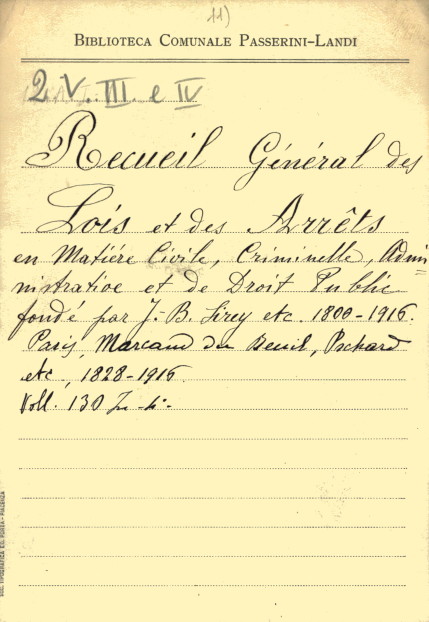 11)
BIBLIOTECA COMUNALE PASSERINI-LANDI
2. V. III e IV
Recueil Général des
Lois et des Arrêts
en Matiére Civile, Criminelle, Admi
nistrative et de Droit Public
fondé par J.-B. Sirey etc. 1800-1916.
Paris, Marcand du Beuil, Pichard
etc, 1828-1916
Voll. 130 In-4.-